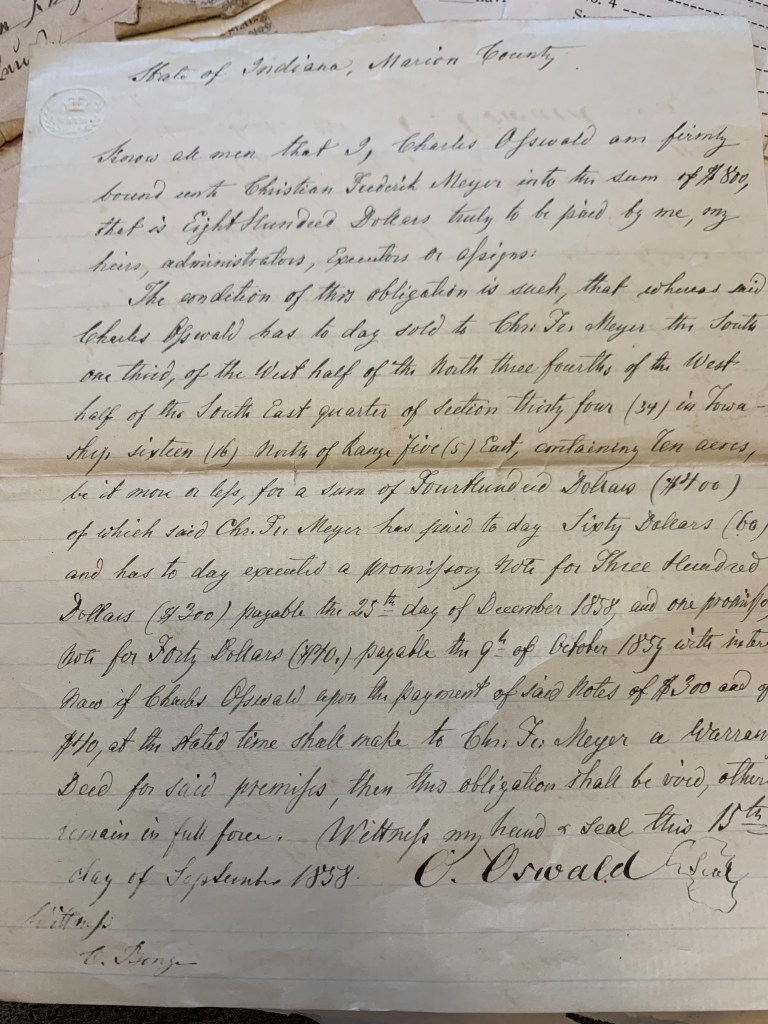 State of Indiana, Marion County
Know all men that I, Charles Osswald am firmly
bound unto Christian Frederick Meyer into the sum of $800,
that is Eight Hundred Dollars truly to be paid by me, my
heirs, administrators, Executors or assigns:
The condition of this obligation is such, that whereas said
Charles Osswald has to day sold to Chr. Fr. Meyer the South
one third, of the West half of the North three fourths of the West
half of the South East quarter of section thirty four (34) in Town-
ship sixteen (16) North of Range five (5) East, containing Ten acres,
be it more or less, for a sum of Four Hundred Dollars ($400)
of which said Chr. Fr. Meyer has paid to day Sixty Dollars (60)
and has to day executed a promissory Note for Three Hundred
Dollars ($300) payable the 25th day of December 1858, and one promisso
Note for Forty Dollars ($40.) payable the 9th of October 1859 with inter
Now if Charles Osswald upon the payment of said Notes of $300 and of
$40, at the stated time shall make to Chr. Fr. Meyer a Warran
Deed for said premises, then this obligation shall be void, other
remain in full force. Wittness my hand & seal this 15th
day of September 1858. C. Oswald Seal
Wittness
C.
No. 4